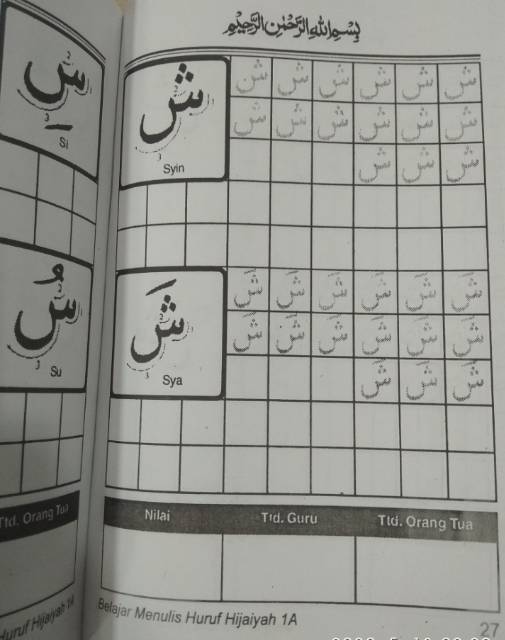 سِ
Si
سُ
Su
Ttd. Orang Tua
Huruf Hijaiyah 1A
بِسْمِ اللهِ الرَّحْمٰنِ الرَّحِيْمِ
ش ش ش ش ش ش ش
ش ش ش ش ش ش
ش ش ش
Syin
شَ شَ شَ شَ شَ شَ شَ
شَ شَ شَ شَ شَ شَ
شَ شَ شَ
Sya
Nilai Ttd. Guru Ttd. Orang Tua
Belajar Menulis Huruf Hijaiyah 1A
27